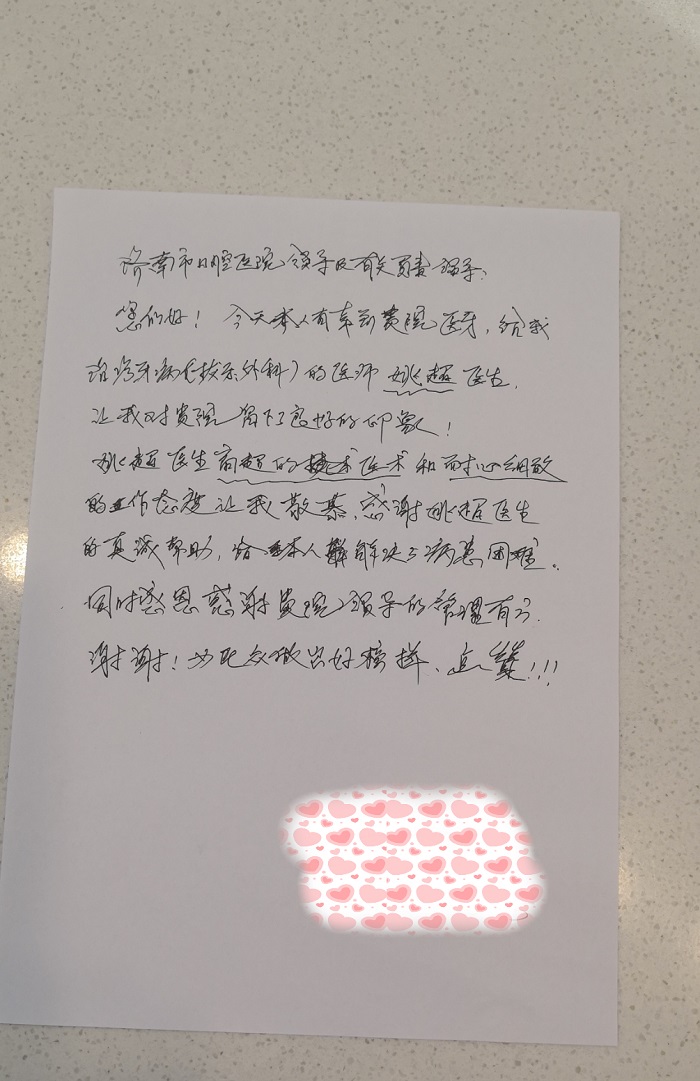 济南市口腔医院领导及有关负责领导:
您们好！今天本人有幸到贵院医牙，给我
治疗牙病(拔牙外科)的医师姚超医生,
让我对贵院留下了良好的印象！
姚超医生高超的技术医术和耐心细致
的工作态度让我敬慕、感谢姚超医生
的真诚帮助，给本人解决了病患困难。
同时感恩感谢贵院领导的管理有方.
谢谢！为民众做出好榜样、点赞!!!